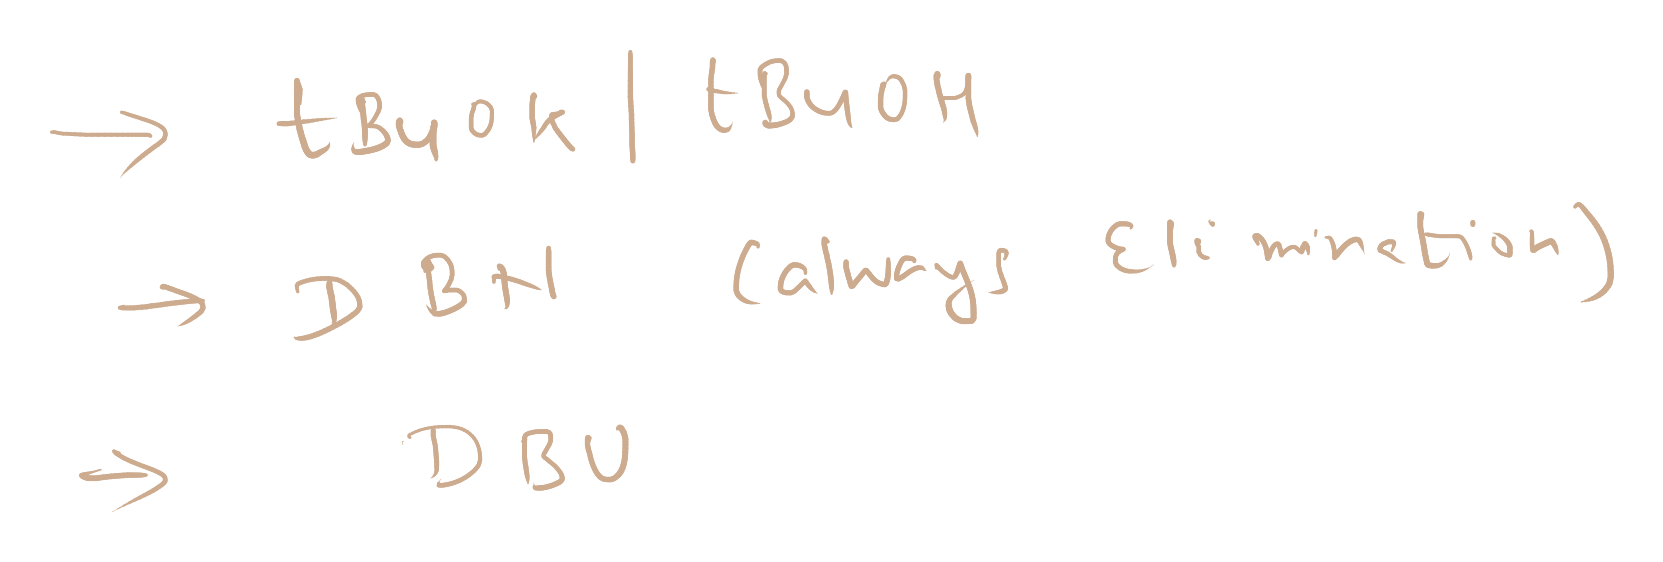 → tBuOK | tBuOH
→ DBN (always Elimination)
→ DBU